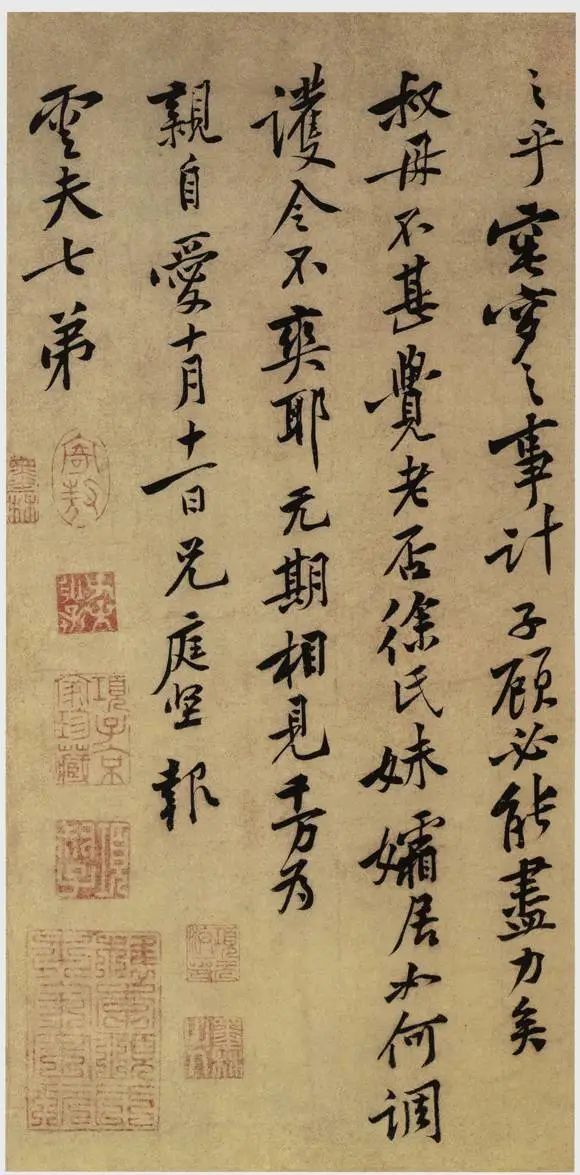 之乎窀穸之事計子顧必能盡力矣
叔母不甚覺老否徐氏妹孀居如何调
護令不爽耶无期相見千万为
親自愛十月十一日兄庭坚報
雲夫七弟
項子京
家珍藏